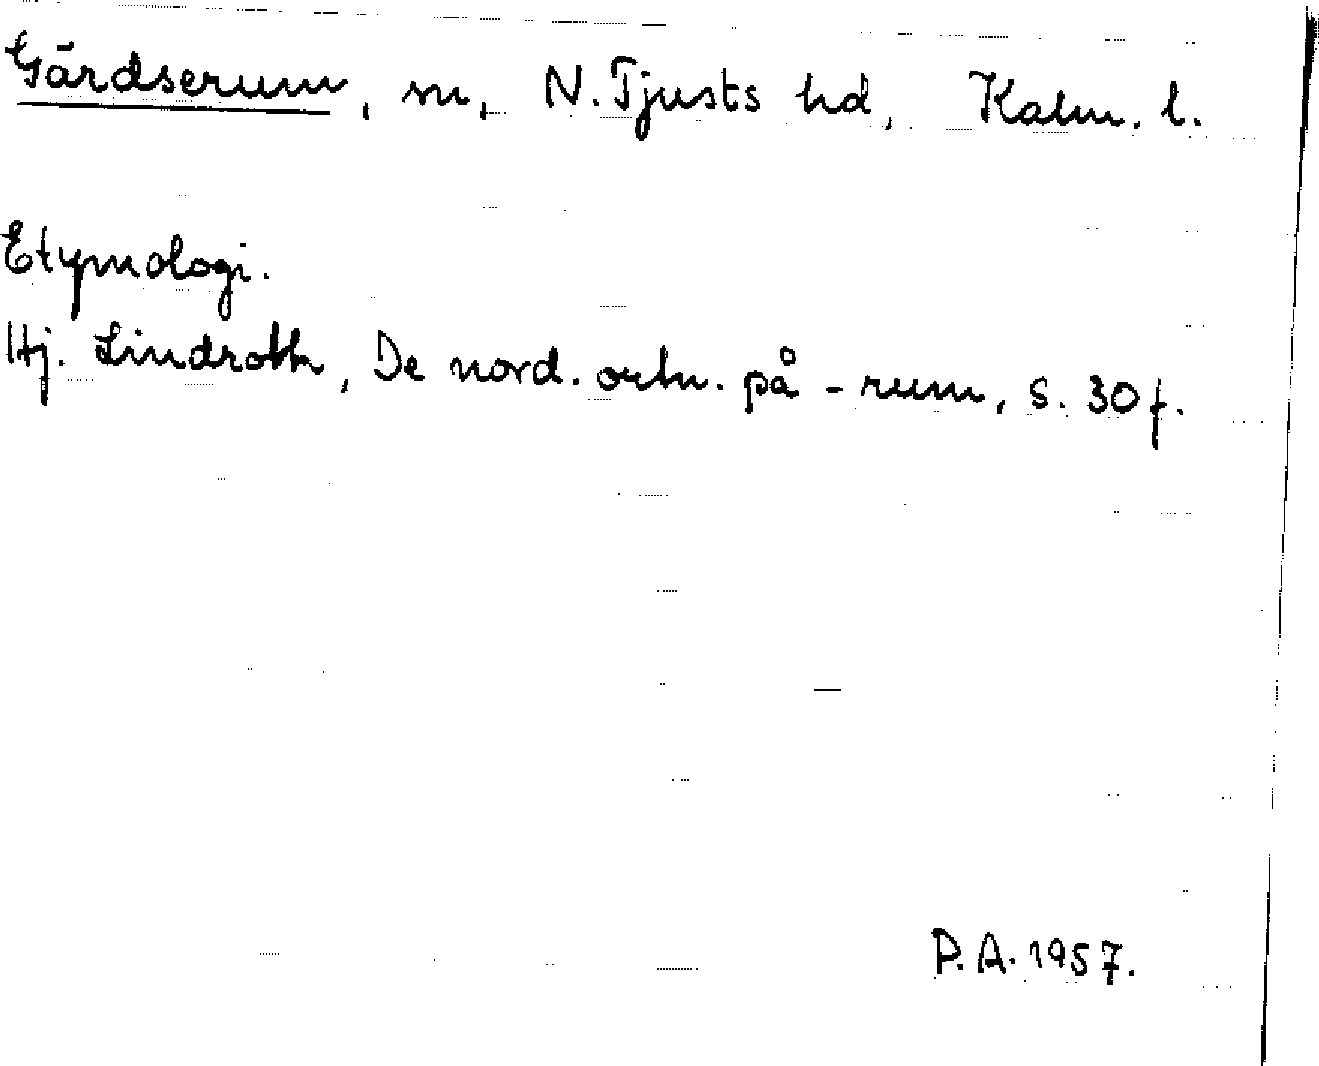 Gärdserum, sn, N. Tjusts hd, Kalm. l.
Etymologi.
Hj. Lindroth, De nord. ortn. på -rum, s. 30 f.
P. A. 1957.